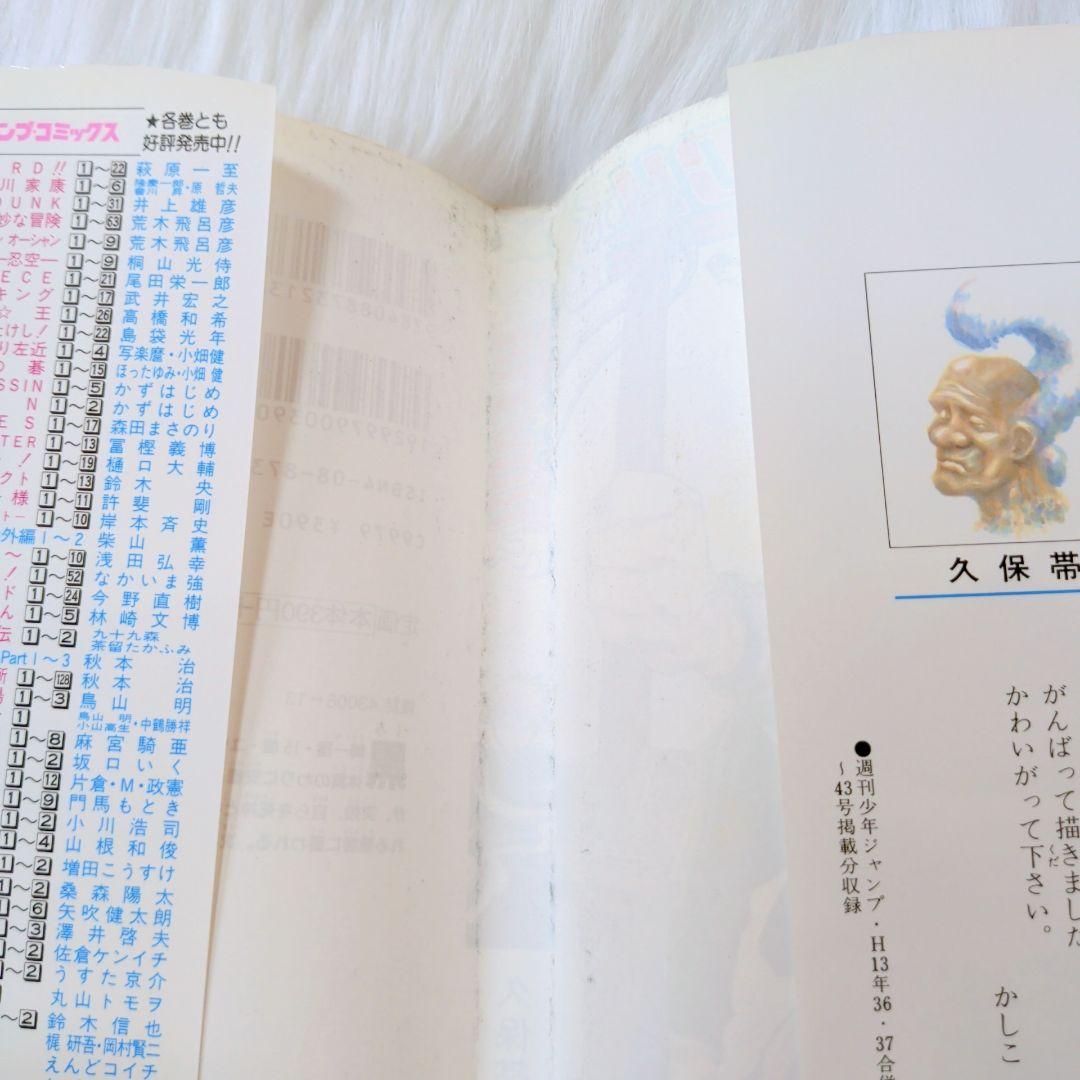 ンプ・コミックス
★各巻とも
好評発売中!!
RD!! 1～22 萩原一至
川家康 1～6 隆慶一郎・原 哲夫
DUNK 1～31 井上雄彦
妙な冒険 1～63 荒木飛呂彦
ン オーシャン 1～9 荒木飛呂彦
―忍空― 1～9 桐山光侍
ECE 1～21 尾田栄一郎
キング 1～17 武井宏之
☆王 1～26 高橋和希
たけし! 1～22 島袋光年
り左近 1～4 写楽麿・小畑健
の碁 1～15 ほったゆみ・小畑 健
SSIN 1～5 かずはじめ
N 1～2 かずはじめ
ES 1～17 森田まさのり
TER 1～13 冨樫義博
! 1～19 樋口大輔
クト 1～13 鈴木央
様 1～11 許斐剛
ト― 1～10 岸本斉史
外編 1～2 柴山薫
～ 1～10 浅田弘幸
! 1～52 なかいま強
ド 1～24 今野直樹
ん 1～5 林崎文博
伝 1～2 九十九森
茶留たかふみ
Part 1～3 秋本治
所 1～128 秋本治
1～3 鳥山明
1 鳥山 明
小山高生・中鶴勝祥
1～8 麻宮騎亜
1～2 坂口いく
1～12 片倉・M・政憲
1～9 門馬もとき
1～2 小川浩司
1～4 山根和俊
1～2 増田こうすけ
1～2 桑森陽太
1～6 矢吹健太朗
1～3 澤井啓夫
1～2 佐倉ケンイチ
～2 うすた京介
丸山トモヲ
～2 鈴木信也
梶 研吾・岡村賢二
えんどコイチ
久保帯
がんばって描きました
かわいがって下さい。
くだ
かしこ
●週刊少年ジャンプ・H13年36・37合併
～43号掲載分収録